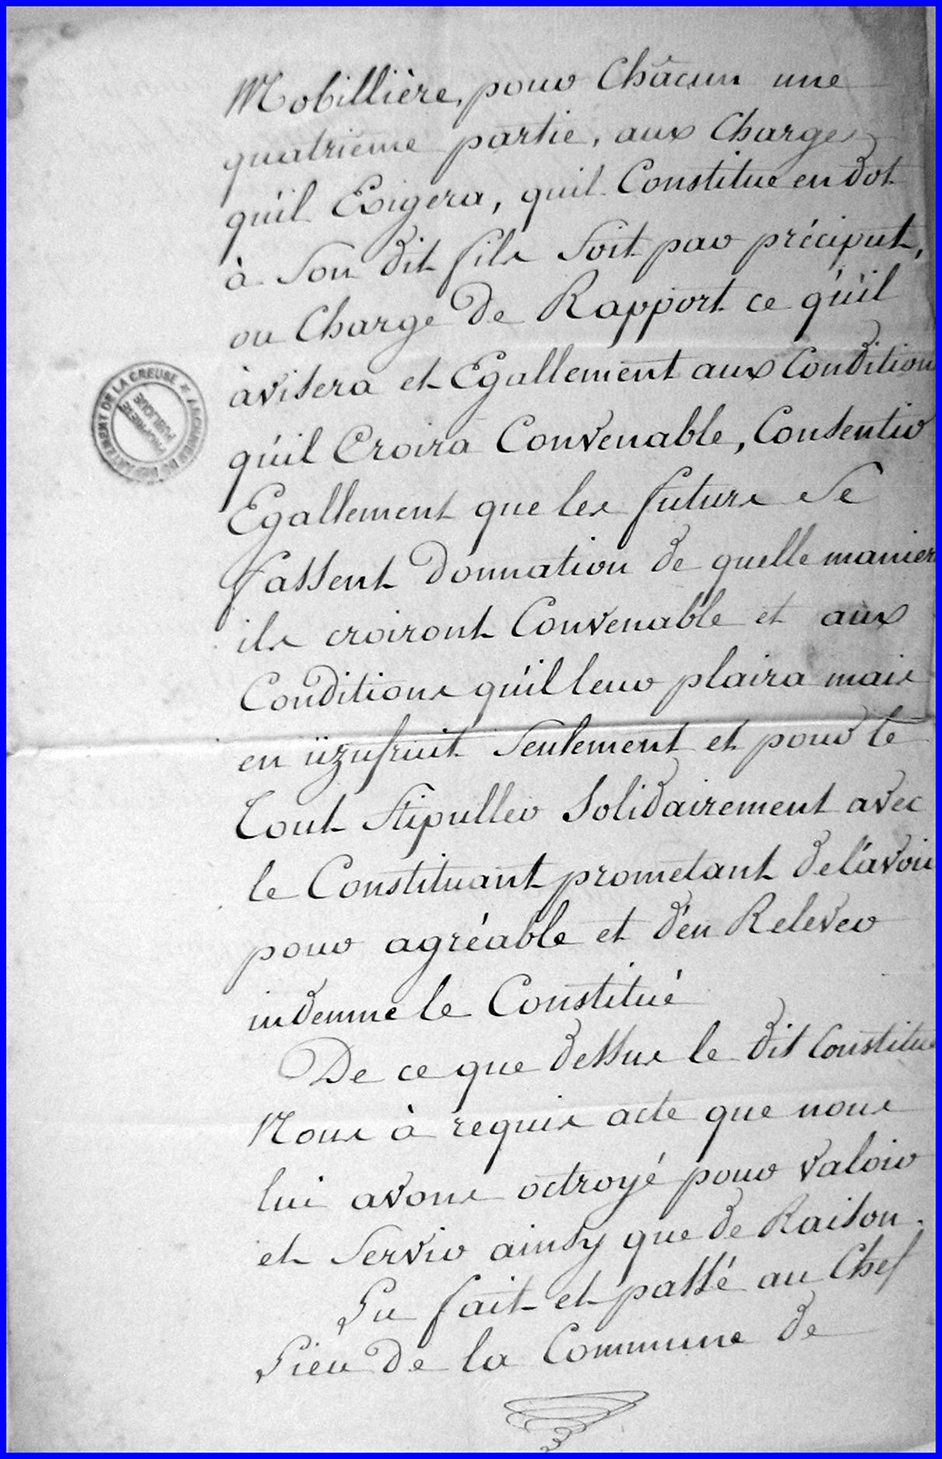 Mobillière, pour Châcun une
quatrième partie, aux Charges
qu'il Exigera, quil Constitue en dot
à Son dit fils Soit par préciput,
ou Charge de Rapport ce qu'il
àvisera et Egallement aux Condition
qu'il Croira Convenable, Consentir
Egallement que les futurs Se
fassent donnation de quelle manier
ils croiront Convenable et aux
Conditions qu'il leur plaira mais
en üzufruit Seulement et pour le
Tout Stipuller Solidairement avec
le Constituant prometant de l'avoir
pour agréable et d'en Relever
indemne le Constitué
De ce que dessus le dit Constitué
Nous à requis acte que nous
lui avons octroyé pour valoir
et Servir ainsy que de Raison.
Lu fait et passé au Chef
Lieu de la Commune de
DEPARTEMENT DE LA CREUSE * ARCHIVES DU
PROPRIETE
PUBLIQUE